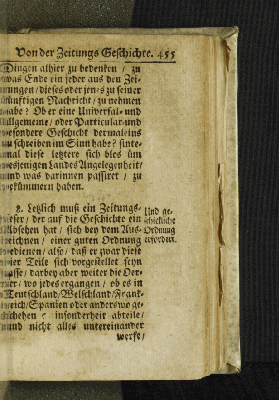 Von der Zeitungs Geschichte. 455
Dingen alhier zu bedenken / zu
was Ende ein jeder aus den Zei-
tungen / dieses oder jenes zu seiner
künftigen Nachricht / zu nehmen
habe? Ob er eine Universal- und
allgemeine / oder Particular- und
besondere Geschicht dermaleins
zu schreiben im Sinn habe? sinte-
mal diese letztere sich blos um
desjenigen Landes Angelegenheit /
und was darinnen passiret / zu
bekümmern haben.
8. Letzlich muß ein Zeitungs-
leser / der auf die Geschichte ein
Absehen hat / sich bey dem Aus-
zeichnen / einer guten Ordnung
bedienen / also / daß er zwar diese
vier Teile sich vorgestellet seyn
lasse / darbey aber weiter die Oer-
ter / wo jedes ergangen / ob es in
Teutschland / Welschland / Frank-
reich / Spanien oder anders wo ge-
schehen / insonderheit abteile /
und nicht alles untereinander
werfe /
Und ge-
schickliche
Ordnung
erfordert.